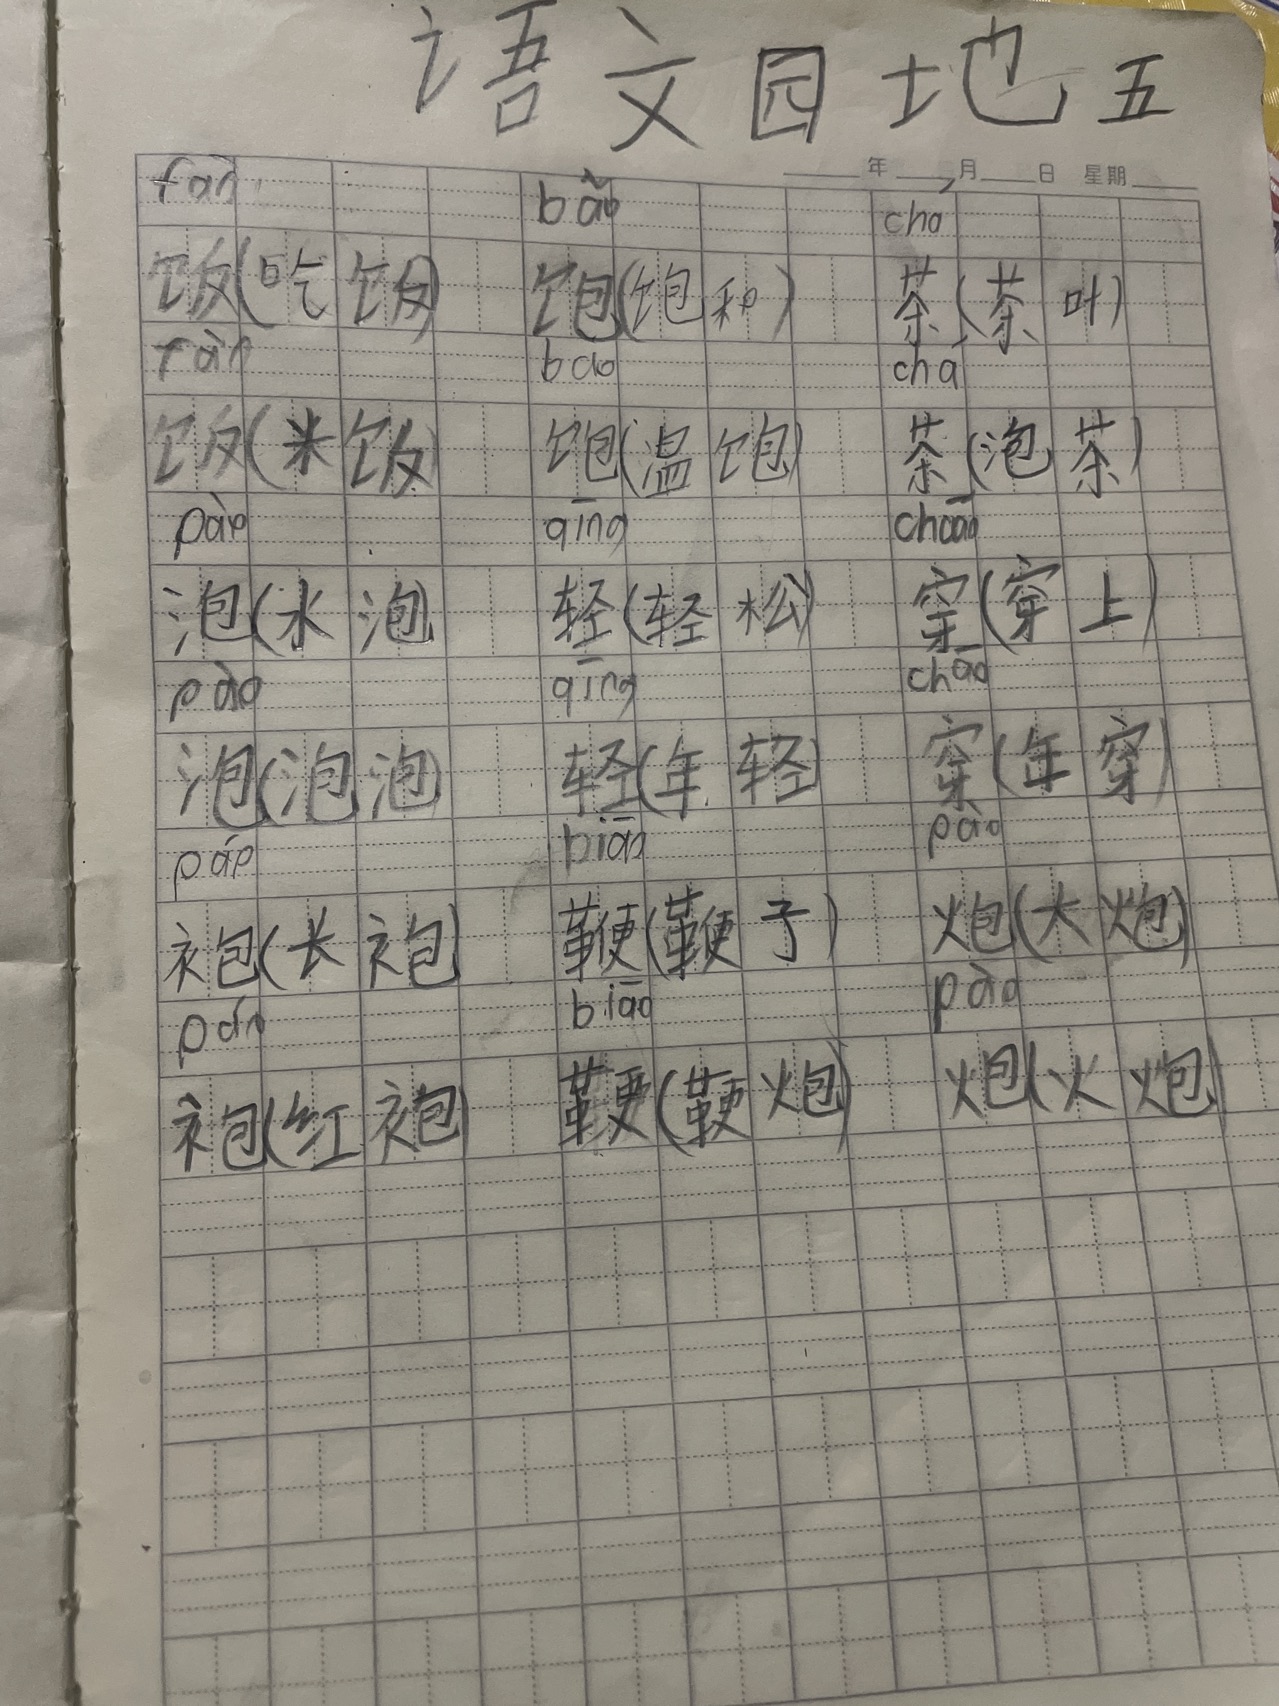 语文园地五
年 月 日 星期
fàn bǎo chá
饭(吃饭) 饱(饱和) 茶(茶叶)
fàn bao chá
饭(米饭) 饱(温饱) 茶(泡茶)
pào qīng
泡(水泡) 轻(轻松) 穿(穿上)
pào qīng chāo
泡(泡泡) 轻(年轻) 穿(年穿)
páo biāo pào
袍(长袍) 鞭(鞭子) 炮(大炮)
páo biāo pào
袍(红袍) 鞭(鞭炮) 炮(火炮)